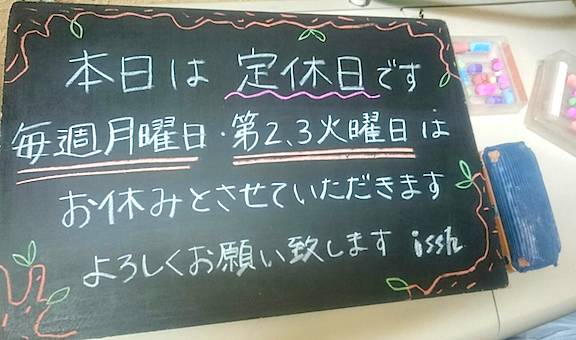 本日は 定休日です
毎週月曜日・第2、3火曜日は
お休みとさせていただきます
よろしくお願い致します issh